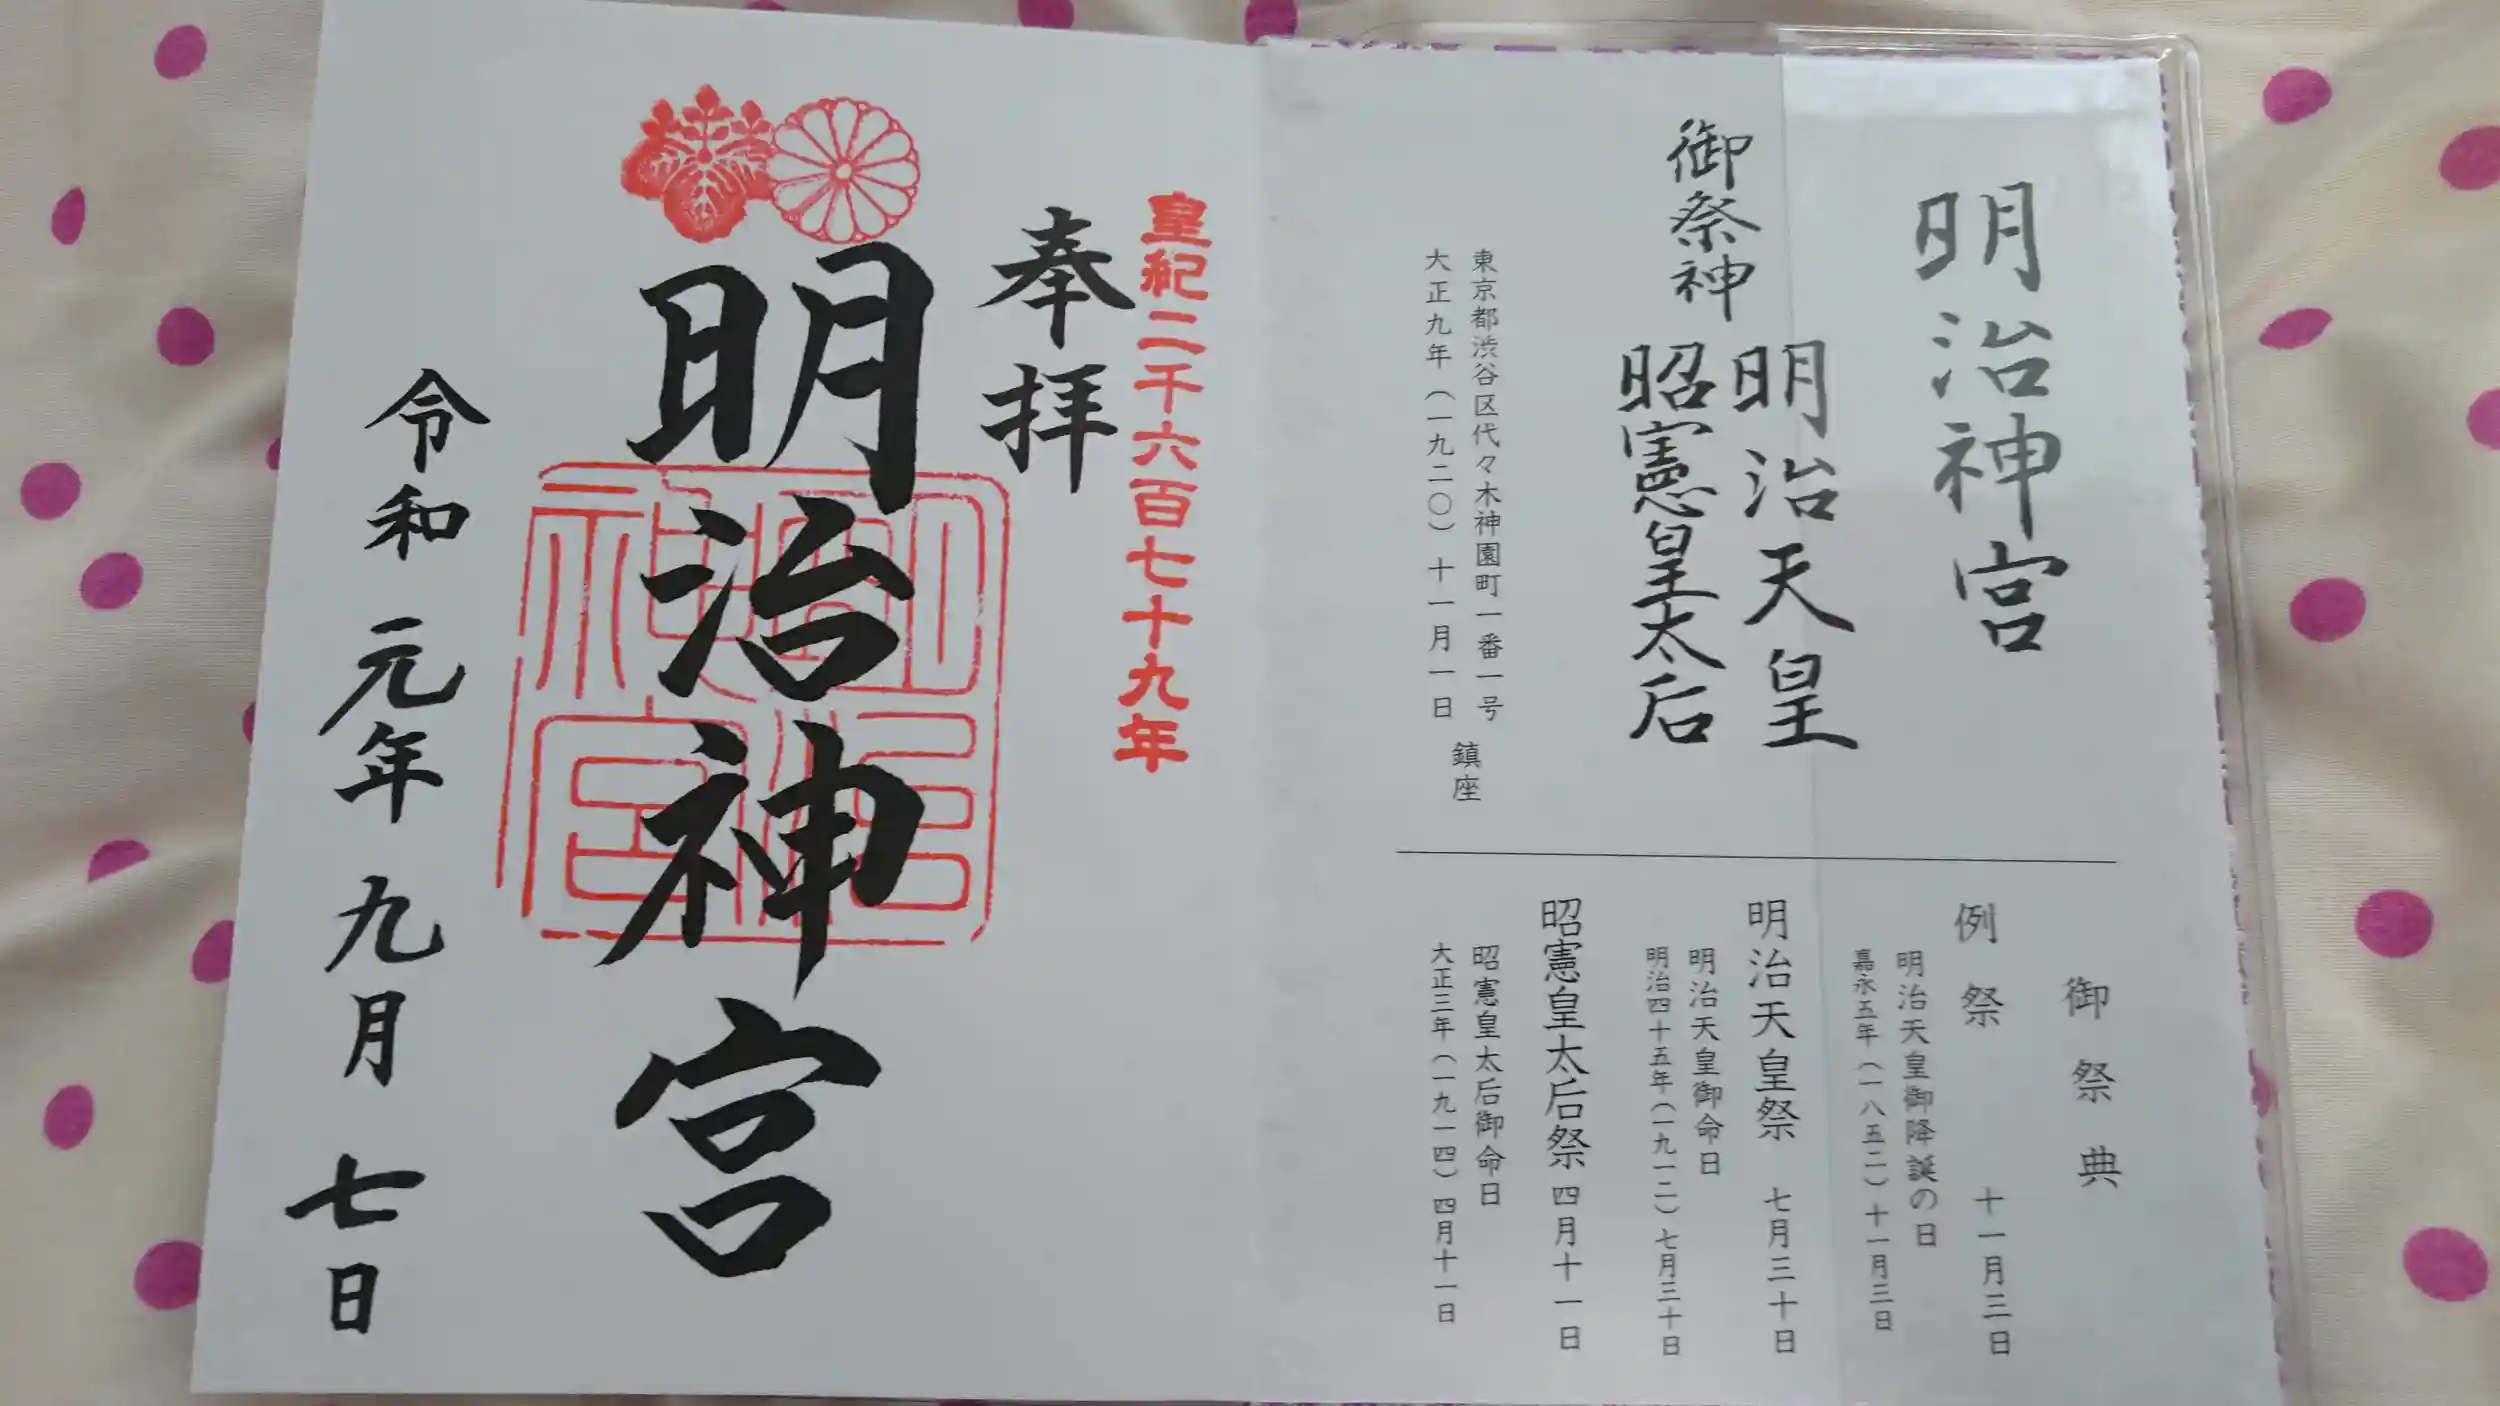 明治神宮
御祭神
明治天皇
昭憲皇太后
東京都渋谷区代々木神園町一番一号
大正九年(一九二〇)十一月一日
鎮座
御祭典
例祭 十一月三日
明治天皇御降誕の日
嘉永五年(一八五二)十一月三日
明治天皇祭 七月三十日
明治天皇御命日
明治四十五年(一九一二)七月三十日
昭憲皇太后祭 四月十一日
昭憲皇太后御命日
大正三年(一九一四)四月十一日
皇紀二千六百七十九年
奉拝
明治神宮
明治神宮
令和元年九月七日